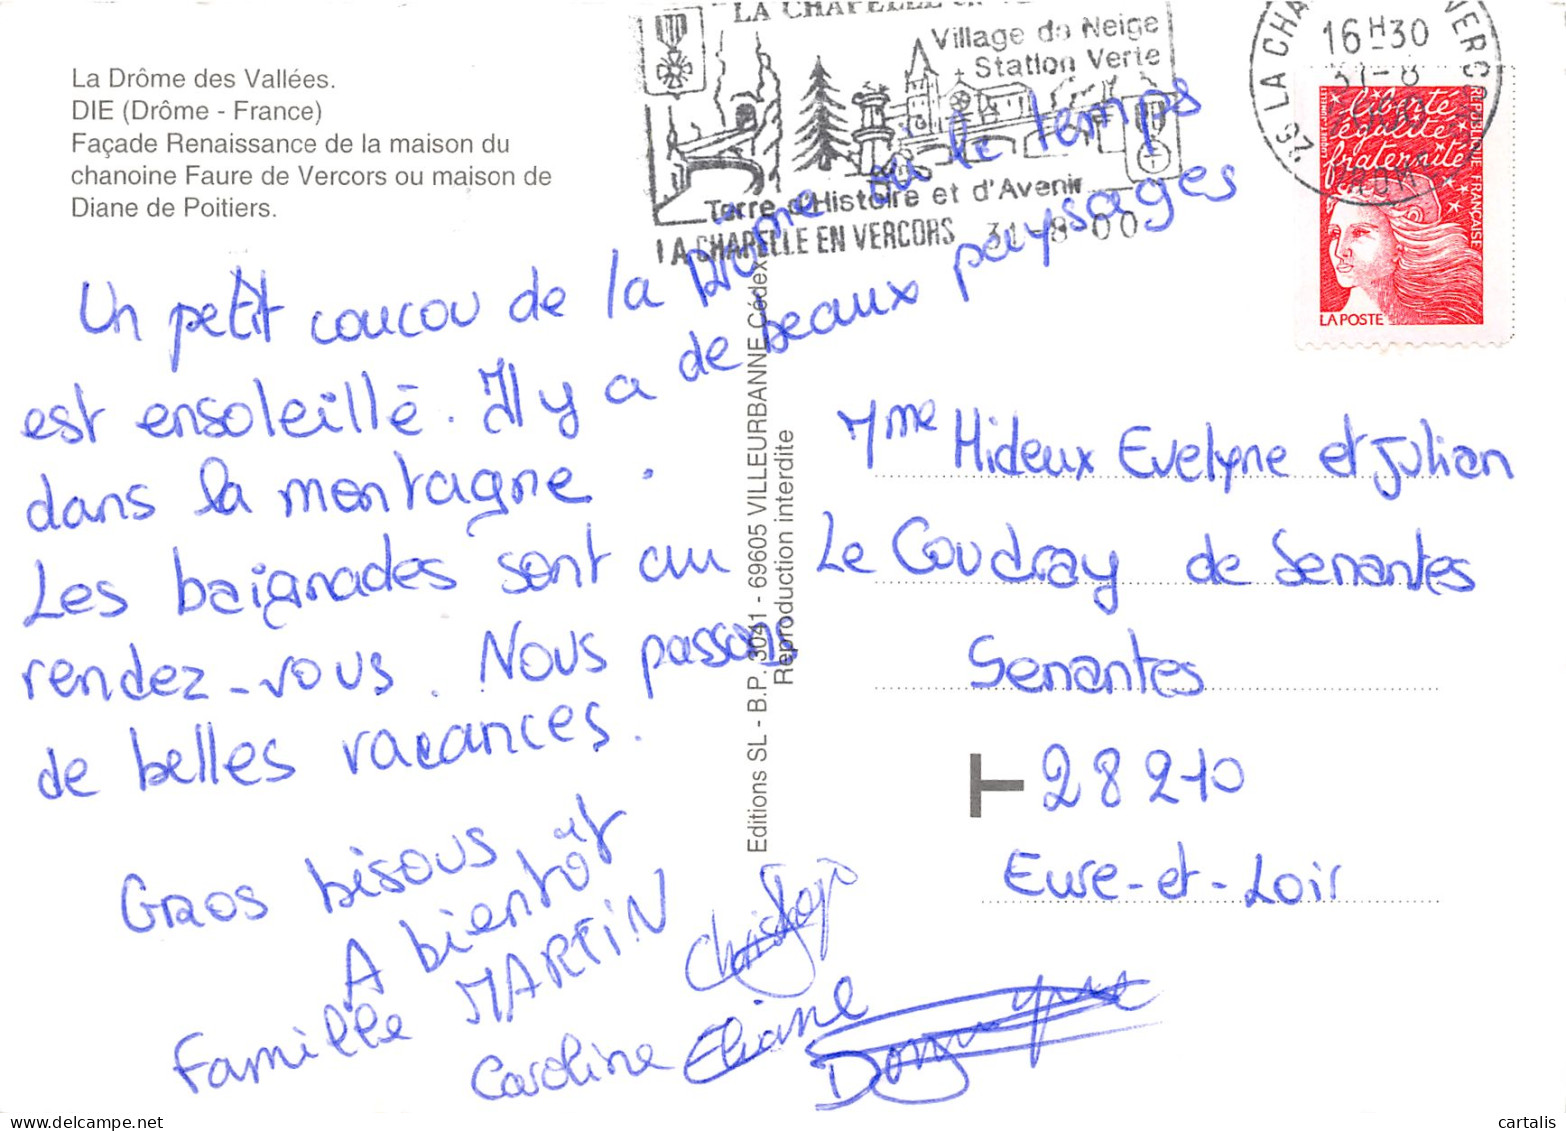 La Drôme des Vallées.
DIE (Drôme - France)
Façade Renaissance de la maison du
chanoine Faure de Vercors ou maison de
Diane de Poitiers.
LA CHAPELLE
Village de Neige
Station Verte
Terre d'Histoire et d'Avenir
LA CHAPELLE EN VERCORS 31-8-00
26 LA CHA VERCORS
16H30
31-8
liberté
égalité
fraternité
RÉPUBLIQUE FRANÇAISE
LA POSTE
Un petit coucou de la Drôme où le temps
est ensoleillé. Il y a de beaux paysages
dans la montagne.
Les baignades sont au
rendez-vous. Nous passons
de belles vacances.
Gros bisous
A bientôt
Famille MARTIN
Caroline Eliane
Christophe
Dominique
Editions SL - B.P. 3041 - 69605 VILLEURBANNE Cédex
Reproduction interdite
Mme Hideux Evelyne et Julian
Le Coudray de Senantes
Senantes
T 28210
Eure-et-Loir
cartalis